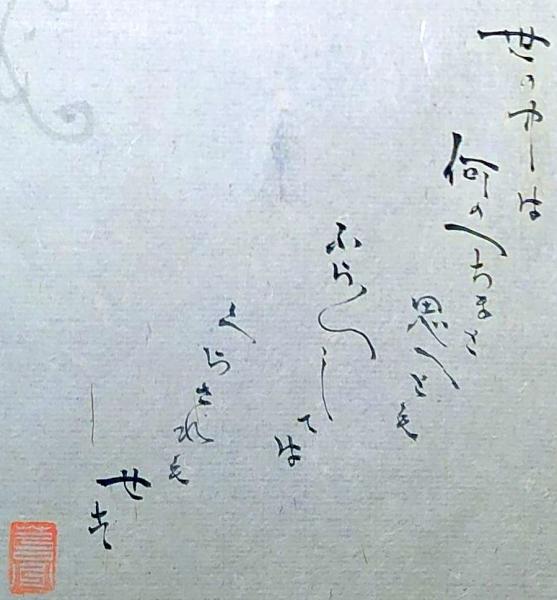 世の中は
何のへちまと
思へとも
ふら〳〵しては
くらされも
せす